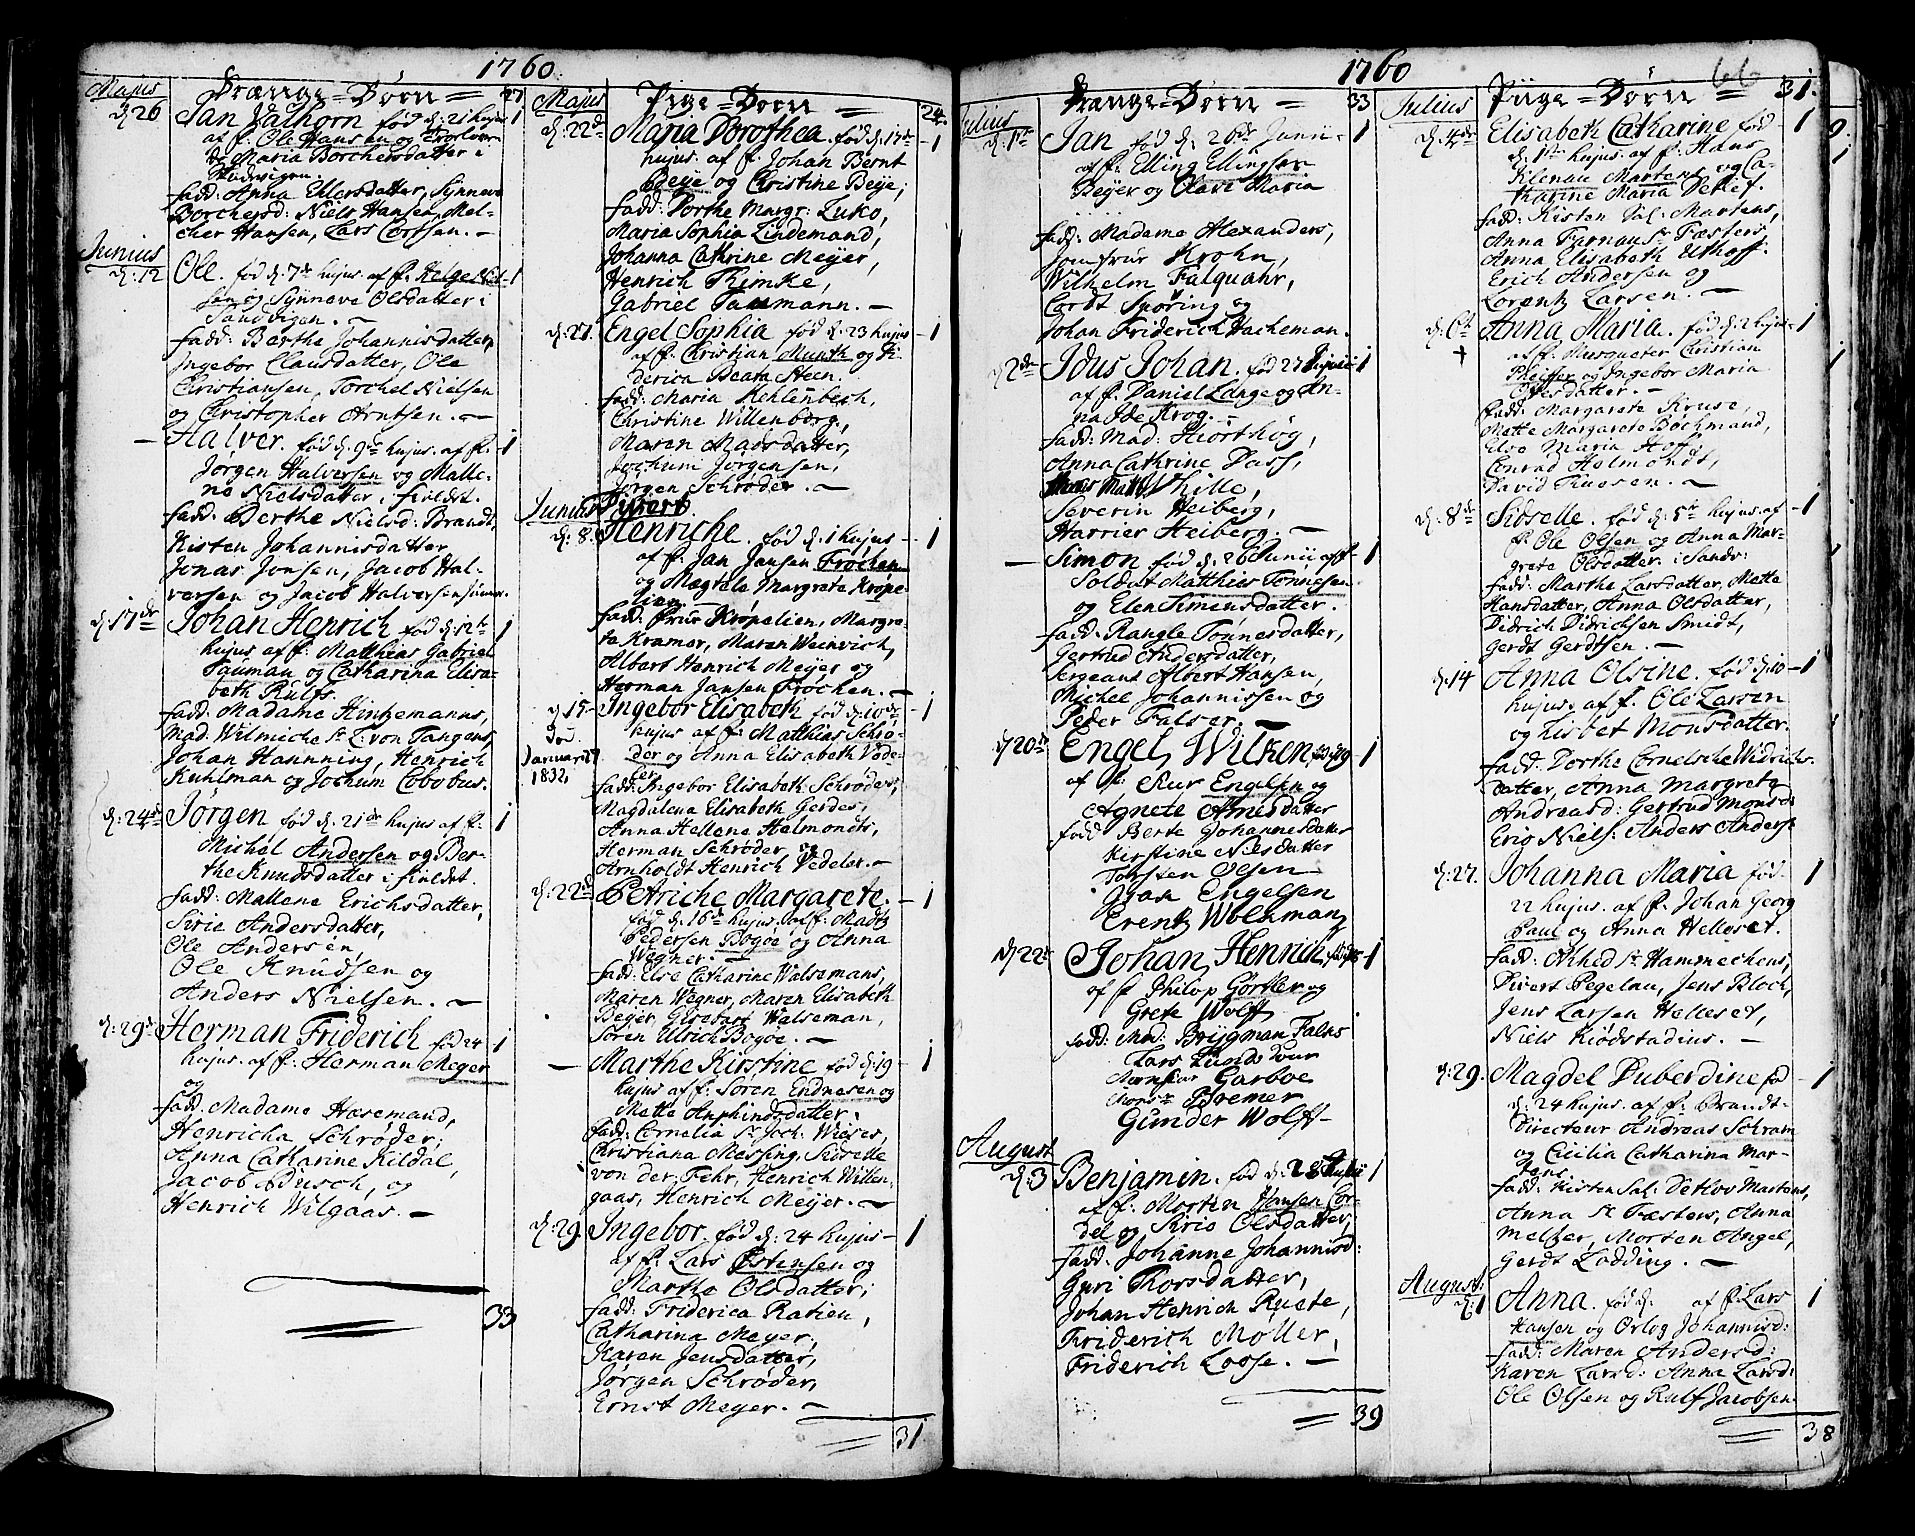 1760.
Majus
Drænge=Børn =
27
d: 26
Jan Valhorn født d: 21 hujus 1
af f. Ole Hansen og
Maria Borchersdatter i
Sandvigen.
fadd: Anna Ehlersdatter, Synneve
Borchersd: Niels Hansen, Mel-
cher Hansen, Lars Corssen. —
Junius
d: 12
Ole. fød d: 7de hujus af f. Helge Niel- 1
sen og Synneve Olsdatter i
Sandvigen. —
fadd: Barthe Johannisdatter,
Ingebor Clausdatter, Ole
Christiansen, Torchel Nielsen
og Christopher Arntsen. —
— Halver. fød d: 9de hujus. af f. 1
Jørgen Halversen og Malle-
ne Nielsdatter i fieldet.
fadd: Berthe Nielsd: Brandt,
Kisten Johannisdatter
Jonas Jonsen, Jacob Hal-
versen og Jacob Halversen junior.
d: 17de
Johan Henrich fød d: 12te 1
hujus af f: Matthias Gabriel
Tauman og Catharina Elisa-
beth Rulfs.
fadd: Madame Hintzemanns,
Mad: Wilmiche Sl. L: von Tangens,
Johan Hanning, Henrich
Kuhlman og Jochum Cobobus.
d: 24de
Jørgen fød d: 21de hujus af f: 1
Michel Andersen og Ber-
the Knudsdatter i fieldet.
fadd: Mallene Erichsdatter,
Sirie Andersdatter,
Ole Andersen,
Ole Knudsen og
Anders Nielsen. —
d: 29de
Herman Friderich fød 24 1
hujus. af f. Herman Meyer
og
fadd. Madame Hasemand,
Henricha Schrøder,
Anna Catharine Kildal,
Jacob Busch, og
Henrich Wilgaas. —
33
Majus
Pige=Børn =
24
d: 22de
Maria Dorothea. fød d: 17de 1
hujus. af f. Johan Bernt
Beije og Christine Beije;
fadd: Dorthe Margr: Luko,
Maria Sophia Lindemand,
Johanna Cathrine Meyer,
Henrich Rimke,
Gabriel Taumann. —
d: 27.
Engel Sophia fød d: 23 hujus 1
af f. Christian Munth og Fri-
derica Beata Steen.
fadd: Maria Kehlenbech,
Christine Willenborg,
Maren Madsdatter,
Jochum Jørgensen,
Jørgen Schrøder. —
Junius
d: 8.
Henriche. fød d: 1 hujus 1
af f. Jan Jansen Frøchen
og Magrete Margreta Krøpe-
lien.
fadd: Frue Krøpelien, Margre-
ta Kramer, Maren Weinvich,
Albart Henrich Meyer og
Herman Jansen Frøchen. —
d 15
Død
Januarii
1832,
Ingebor Elisabeth fød d: 10de 1
hujus af f. Matthias Schrø-
der og Anna Elisabeth Vede-
ler.
fadd: Ingebor Elisabeth Schrøders,
Magdalena Elisabeth Gerdes,
Anna Hellene Helmonds,
Herman Schrøder og
Arnholdt Henrich Vedeler. —
d: 22de
Petriche Margarete. 1
fød d: 16de hujus, af f. Madtz
Pedersen Bogøe og Anna
Wegner. —
fadd: Else Catharine Walsemans,
Maren Wegner, Maren Elisabeth
Beyer, Gisebart Walseman,
Søren Ulrich Bogøe. —
— Marthe Kirstine fød d: 19 1
hujus af f. Søren Endresen og
Mette Anphindsdatter.
fadd: Cornelia Sl Joch: Wieses,
Christiana Messing, Sidselle
von der Fehr, Henrich Willen-
gaas, Henrich Meyer. —
d: 29.
Ingebor. fød d: 24 hujus 1
af f. Lars Østensen og
Martha Olsdatter,
fadd: Friderica Ratien,
Catharina Meyer,
Karen Jensdatter,
Jørgen Schrøder,
Ernst Meyer. —
31
1760
66
Julius
Drænge=Børn =
33
d: 1te
Jan fød d. 26de Junii 1
af f. Elling Ellingsen
Beyer og Maria
fadd: Madame Alexanders,
Jomfrue Krohn,
Wilhelm Falquahr,
Cordt Spøring og
Johan Friderich Hacheman.
2de
Idus Johan. fød 27 Junii 1
af f. Daniel Lange og An-
na Ide Krog. —
fadd: Mad: Hiorthøg,
Anna Cathrine Dass,
Hille,
Severin Heiberg,
Harrier Heiberg. —
— Simon fød d: 26 Junii af f 1
Soldat Matthies Tønnesen
og Elen Simensdatter.
fadd: Rangle Tønnesdatter,
Gertrud Andersdatter,
Sergeant Albert Hansen,
Michel Johannissen og
Peder Falser. —
d 20de
Engel Wilken fød d 19 1
af f: Siur Engelsen og
Agnete Arnesdatter
fadd Berte Johannesdatter
Kirstine Nielsdatter
Torsten Olsen
Johan Engelsen
Erentz Wolkman
d 22de
Johan Henrich 1
af f. Philop Gørtler og
Grete Wolff
fadd: Mad: Bryggman Falns
Lars Lund
Monsieur Garboe
Monsr Bremer
Gunder Wolff —
August
d: 3
Benjamin. fød d: 28 Julii 1
af f. Morten Hansen Cor-
del og Siric Olsdatter,
fadd: Johanne Johannisd:
Guri Thorsdatter,
Johan Henrich Ruste,
Friderich Møller,
Friderich Loose. —
39
Julius
Piige=Børn =
31.
d: 4de
Elisabeth Catharine fød 1
d: 1te hujus. af f. Hans
Klenau Martens og Ca-
tharine Maria Detlef.
fadd: Kisten Sal: Martens,
Anna Farnau Sl Fæsters
Anna Elisabeth Uthoff.
Erich Andersen og
Lorentz Larsen. —
d: 6te
+
Anna Maria. fød d: 2 hujus 1
af f. Musqueter Christian
Pheiffer og Ingebor Maria
Olesdatter. —
fadd: Margarete Kruse,
Mette Margarete Bochmand,
Else Maria Hoff,
Conrad Helmondt,
David Thiesen. —
d: 8de
Sidselle. fød d: 5te hujus. af 1
f. Ole Olsen og Anna Mar-
grete Olsdatter. i Sandv:
fadd: Marthe Larsdatter, Mette
Hansdatter, Anna Olsdatter,
Didrich Didrichsen Smidt,
Gerdt Gerdtsen. —
d: 14
Anna Olsine. fød d: 10 1
hujus. af f. Ole Larsen
og Lisbet Monsdatter.
fadd: Dorthe Cornelsche Didrichs-
datter, Anna Margrete
Andreasd: Gertrud Monsd:
Eric Niels: Anders Anderse
d: 27.
Johanna Maria fød. 1
22 hujus. af f. Johan Georg
Paul og Anna Helleset.
fadd: Ahhed Sl Hammechens,
Divert Pegelau, Jens Bloch,
Jens Larsen Helleset,
Niels Riødstadius. —
d: 29.
Magdel Duberdine fø 1
d: 24 hujus. af f. Brandt-
Directeur Andreas Schram
og Cicilia Catharina Mar-
tens.
fadd: Kisten Sal: Detlov Martens,
Anna Sl Fæsters, Anna
Meltzer, Morten Angel,
Gerdt Lødding. —
August.
d: 1
Anna. fød d. af f. Lars 1
Hansen og Orlog Johannisd:
fadd: Maren Andersd:
Karen Larsd: Anna Larsd:
Ole Olsen og Rulf Jacobsen.
38